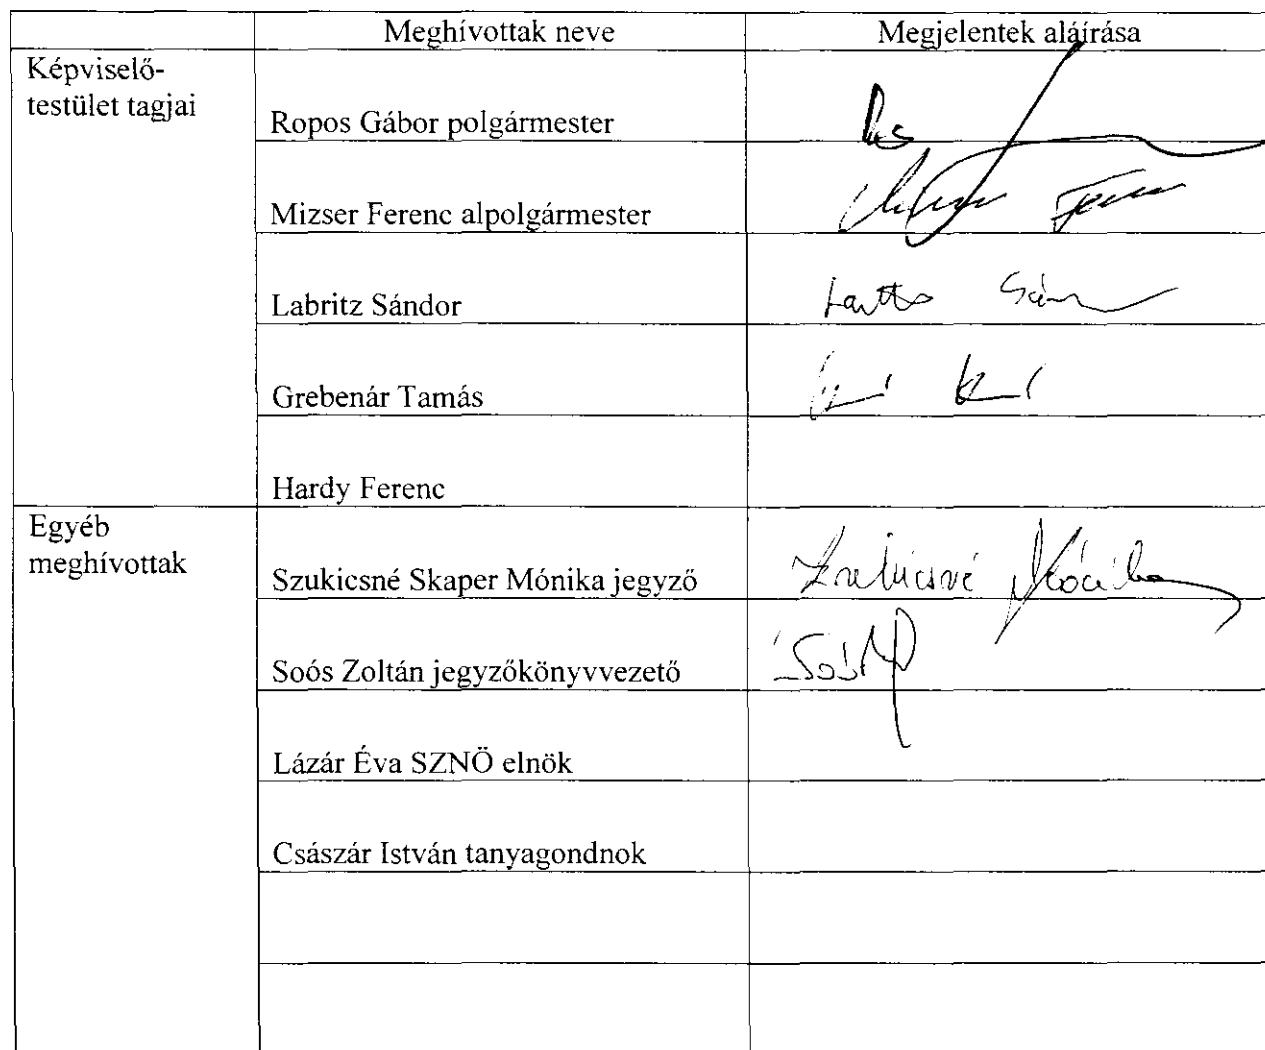 Meghívottak neve Megjelentek aláírása
Képviselő-
testület tagjai
Ropos Gábor polgármester
Mizser Ferenc alpolgármester
Labritz Sándor
Grebenár Tamás
Hardy Ferenc
Egyéb
meghívottak
Szukicsné Skaper Mónika jegyző
Soós Zoltán jegyzőkönyvvezető
Lázár Éva SZNÖ elnök
Császár István tanyagondnok